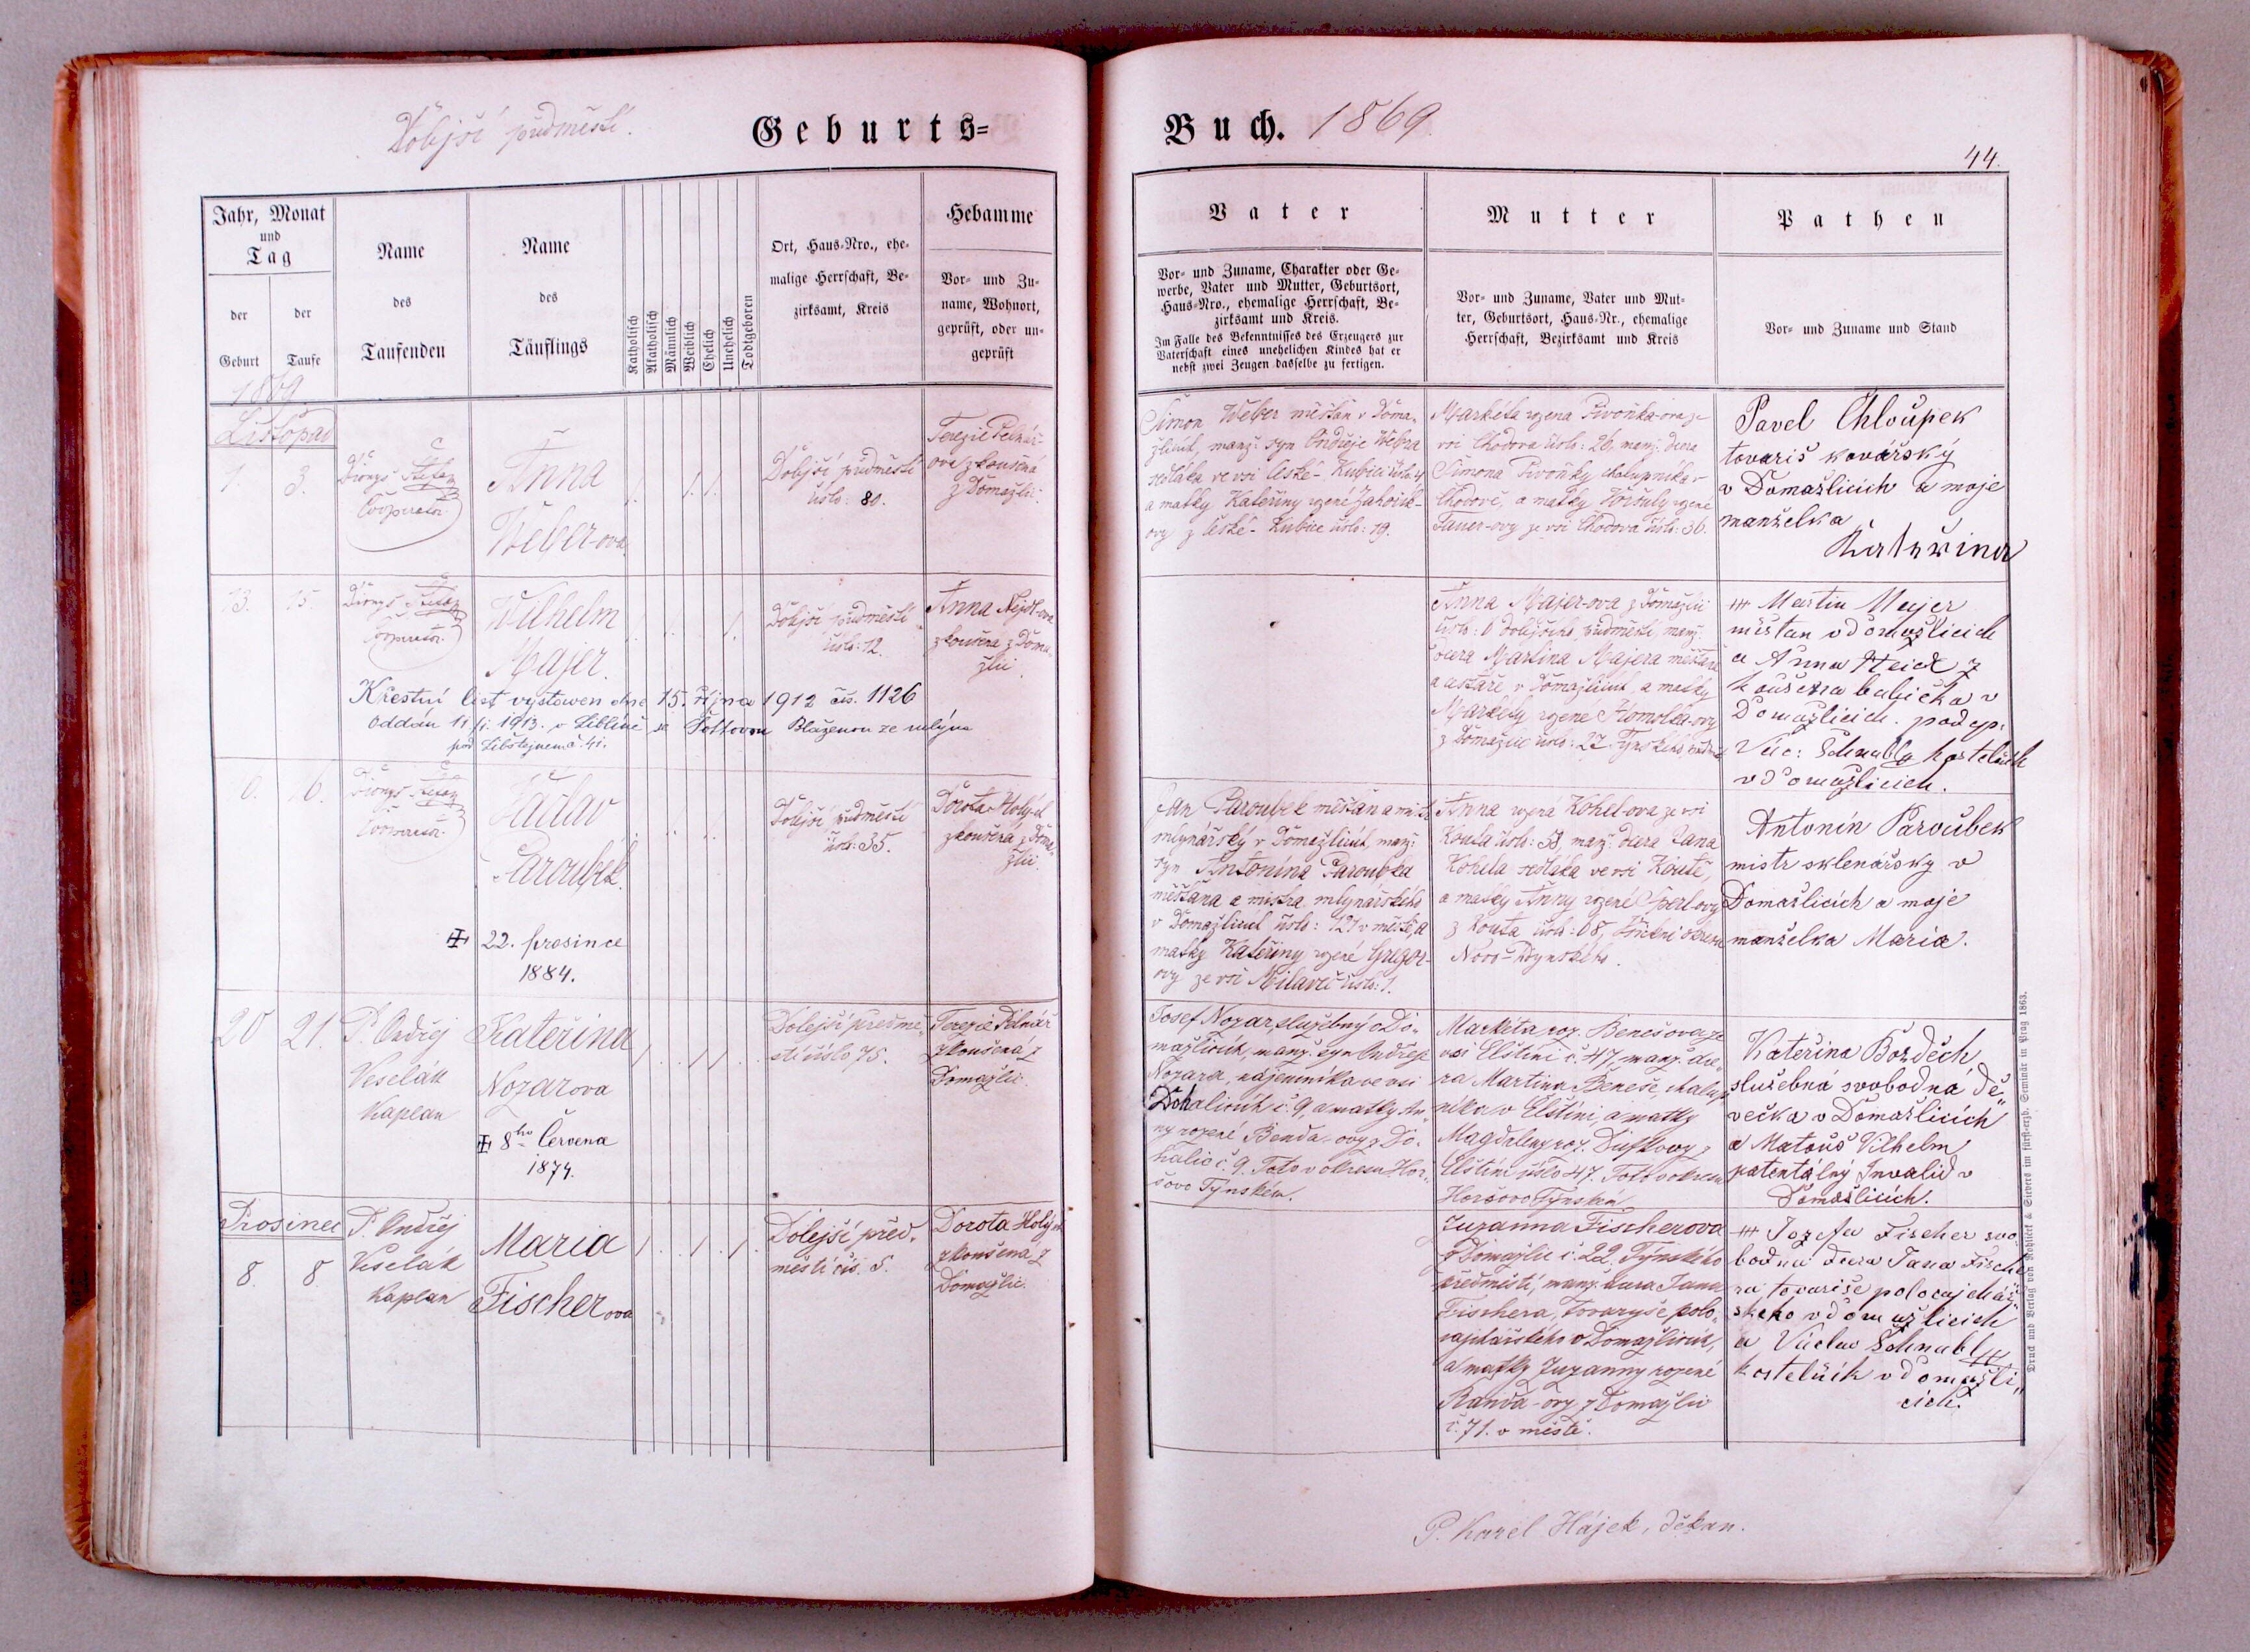 Dolejší předměstí.
Geburts=
Buch. 1869.
44.
Jahr, Monat
und
Tag
der
Geburt
der
Taufe
Name
des
Taufenden
Name
des
Täuflings
Katholisch
Akatholisch
Männlich
Weiblich
Ehelich
Unehelich
Todtgeboren
Ort, Haus=Nro., ehe=
malige Herrschaft, Be=
zirksamt, Kreis
Hebamme
Vor= und Zu=
name, Wohnort,
geprüft, oder un=
geprüft
Vater
Vor= und Zuname, Charakter oder Ge=
werbe, Vater und Mutter, Geburtsort,
Haus=Nro., ehemalige Herrschaft, Be=
zirksamt und Kreis.
Im Falle des Bekenntnisses des Erzeugers zur
Vaterschaft eines unehelichen Kindes hat er
nebst zwei Zeugen dasselbe zu fertigen.
Mutter
Vor= und Zuname, Vater und Mut=
ter, Geburtsort, Haus=Nr., ehemalige
Herrschaft, Bezirksamt und Kreis
Pathen
Vor= und Zuname und Stand
1869.
Listopad
1. 3.
Dionys
Cooperator
Anna
Weber-ova
Dolejší předměstí
číslo: 80.
Terezie
zkoušená
z Domažlic.
Šimon Weber měšťan v Doma-
žlicích, manž. syn Ondřeje Webra
sedláka ve vsi České-Kubici
a matky Kateřiny rozené
ovy z České-Kubice číslo: 19.
Markéta rozená Pivoňka-ova ze
vsi Chodova číslo: 26, manž. dcera
Šimona Pivoňky chalupníka v
Chodově, a matky Voršuly rozené
Tauer-ovy ze vsi Chodova číslo: 36.
Pavel Chloupek
tovariš kovářský
v Domažlicích a moje
manželka
Kateřina
13. 15.
Dionys
Cooperator
Wilhelm
Majer.
Dolejší předměstí
číslo: 12.
Anna Nejdl-ova
zkoušená z Doma-
žlic.
Křestní list vystowen dne 15. října 1912 čís. 1126
Oddán 11/ 1913. v Liblíně se Blaženou ze mlýna
pod Libštejnem č. 41.
Anna Majer-ova z Domažlic
dolejšího předměstí, manž.
dcera Martina Majera měšťana
v Domažlicích, a matky
Markéty rozené Homolka-ovy
z Domažlic číslo: 27
+++ Martin Majer
měštan v domažlicich
a Anna z
koušena babička v
Domažlicich. podep.
Vác: Schnabl kostelník
v domažlicich.
6.
Dionys
Cooperator
Václav
Paroubek.
22. prosince
1884.
Dolejší předměstí
číslo: 35.
Dorota Holý-ch
zkoušená z Doma-
žlic.
Jan Paroubek měšťan a mistr
mlynářský v Domažlicích, manž.
syn Antonína Paroubka
měšťana a mistra mlynářského
v Domažlicích číslo: 121 v městě, a
matky Kateřiny rozené Gregor-
ovy ze vsi Milavče číslo: 1.
Anna rozená Kohel-ova ze vsi
Kouta číslo: 58, manž. dcera Jana
Kohela sedláka ve vsi Koutě,
a matky Anny rozené
z Kouta číslo: 08,
Antonín Paroubek
mistr sklenářsky v
Domažlicích a moje
manželka Maria.
20 21.
P. Ondřej
Veselák
Kaplan
Kateřina
Nozarova
8ho Červena
1874.
Dolejší předmě-
stí číslo 75.
Terezie
zkoušená z
Domažlic.
Josef Nozar, služebný v Do-
mažlicích, manž. syn Ondřeje
Nozara, nájemníka ve vsi
Dohalicích č. 9, a matky An-
ny rozené Benda-ovy z Do-
halic č. 9. Toto v okresu Hor-
šovo Týnském.
Markéta roz. Benešova ze
vsi Elštíní č. 47, manž. dce-
ra Martina Beneše, chalup-
níka v Elštíni, a matky
Magdaleny roz.
Elštíní číslo 47. Toto v okresu
Horšovo Týnském.
Kateřina Bozděch
služebná svobodná dě„
večka v Domažlicích
a Matouš Vilhelm
patentálný Invalid v
Domažlicích.
Prosinec
8. 8.
P. Ondřej
Veselák
Kaplan
Maria
Fischerova
Dolejší před-
městí čís. 5.
Dorota Holých
zkoušená z
Domažlic.
Zuzanna Fischerova
z Domažlic č. 22. Týnského
předměstí, manž. dcera Jana
Fischera, tovaryše polo-
cajkářského v Domažlicích,
a matky Zuzanny rozené
Randa-ovy z Domažlic
č. 71. v městě.
+++ Jozefa Fischer svo-
bodna dcera Jana Fische
ra tovariše polocajchář-
skeho v domažlicich
a Václav Schnabl
kostelník v domažli„
cích.
P. Karel Hájek, děkan.
Druck und Verlag von Rohliček & Sievers im fürst=erzb. Seminär in Prag 1863.